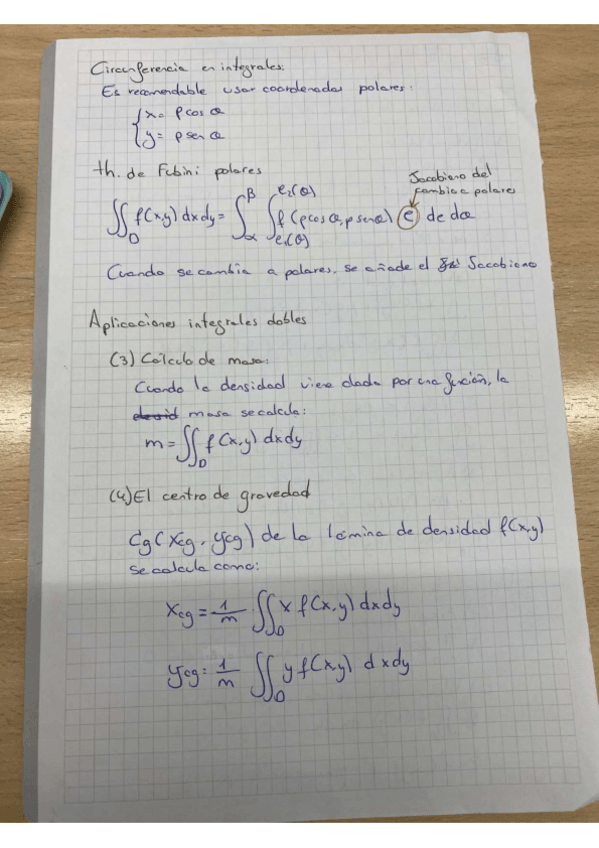 Circunferencia en integrales:
Es recomendable usar coordenadas polares:
{x = ρ cos θ
{y = ρ sen θ
th. de Fubini polares
Jacobiano del
cambio a polares
∬_D f(x,y) dxdy = ∫_α^β ∫_{ρ₁(θ)}^{ρ₂(θ)} f(ρcosθ, ρsenθ) ρ dρ dθ
Cuando se cambia a polares, se añade el Jacobiano
Aplicaciones integrales dobles
(3) Cálculo de masa:
Cuando la densidad viene dada por una función, la
masa se calcula:
m = ∬_D f(x,y) dxdy
(4) El centro de gravedad
Cg(Xcg, Ycg) de la lámina de densidad f(x,y)
se calcula como:
Xcg = 1/m ∬_D x f(x,y) dxdy
Ycg = 1/m ∬_D y f(x,y) dxdy